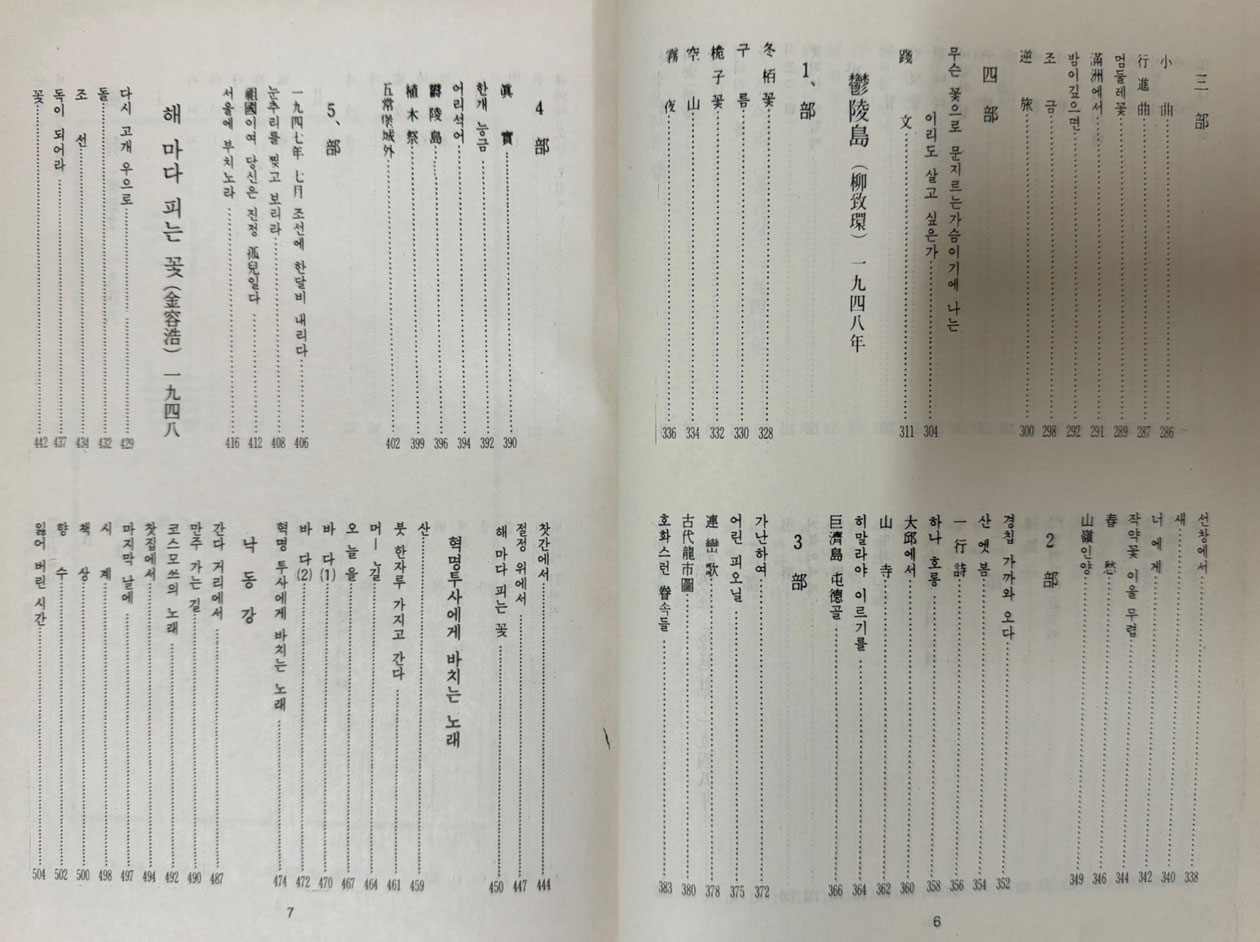 三 部
小 曲 286
行 進 曲 287
멈둘레꽃 289
滿洲에서 291
밤이깊으면 292
조 금 298
逆 旅 300
四 部
무슨 꽃으로 문지르는가슴이기에 나는
이리도 살고 싶은가 304
跋 文 311
鬱陵島 (柳致環) 一九四八年
1、部
冬栢꽃 328
구 름 330
梔子꽃 332
空 山 334
霧 夜 336
선창에서 338
새 340
너 에 게 342
작약꽃 이울 무렵 344
春 愁 346
山嶺인양 349
2 部
경칩 가까와 오다 352
산 엣 봄 354
一 行 詩 356
하나 호롱 358
大邱에서 360
山 寺 362
히말라야 이르기를 364
巨濟島 屯德골 366
3 部
가난하여 372
어린 피오닐 375
連 巒 歌 378
古代龍市圖 380
호화스런 眷속들 383
6
4 部
眞 實 390
한개 능금 392
어리석어 394
鬱陵島 396
植木祭 399
五常堡城外 402
5、部
一九四七年 七月 조선에 한달비 내리다 406
눈추리를 찢고 보리라 408
祖國이여 당신은 진정 孤兒일다 412
서울에 부치노라 416
해 마다 피는 꽃 (金容浩) 一九四八
다시 고개 우으로 429
돌 432
조 선 434
독이 되어라 437
꽃 442
찻간에서 444
절정 위에서 447
해 마다 피는 꽃 450
혁명투사에게 바치는 노래
산 459
붓 한자루 가지고 간다 461
머ー ㄴ길 464
오 늘 을 467
바 다 (1) 470
바 다 (2) 472
혁명 투사에게 바치는 노래 474
낙 동 강
간다 거리에서 487
만주 가는 길 490
코스모쓰의 노래 492
찻집에서 494
마지막 날에 497
시 계 498
책 상 500
향 수 502
잃어 버린 시간 504
7